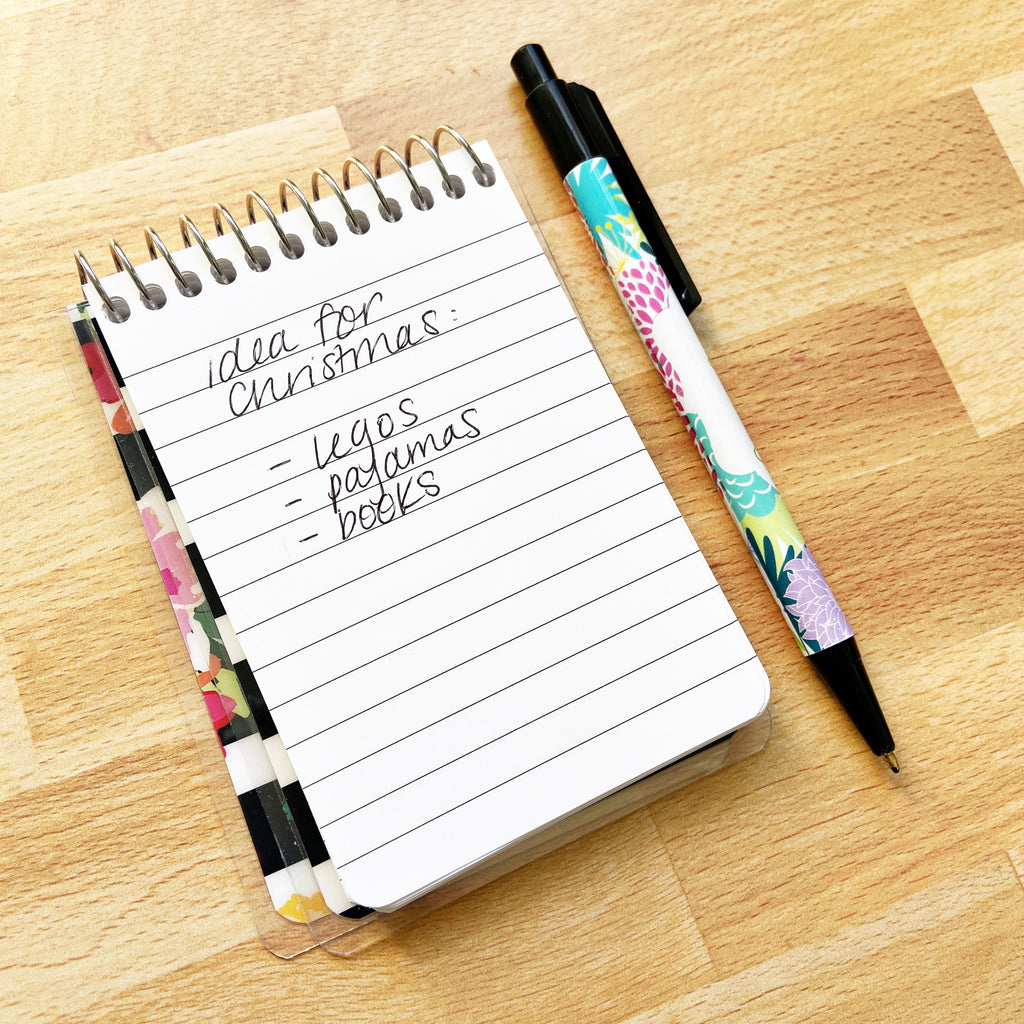 idea for
Christmas:
- legos
- pajamas
- books